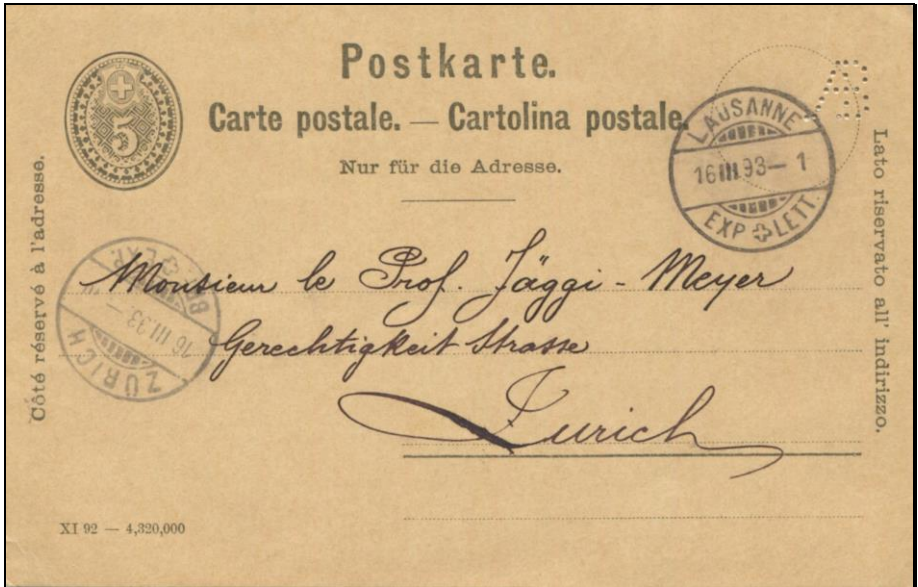 Postkarte.
Carte postale. — Cartolina postale.
Nur für die Adresse.
5
LAUSANNE
16 III 93 — 1
EXP LETT.
Côté réservé à l'adresse.
Lato riservato all' indirizzo.
Monsieur le Prof. Jäggi - Meyer
Gerechtigkeit Strasse
Zurich
EXP.
16 III.93 —
ZÜRICH
XI 92 — 4,320,000